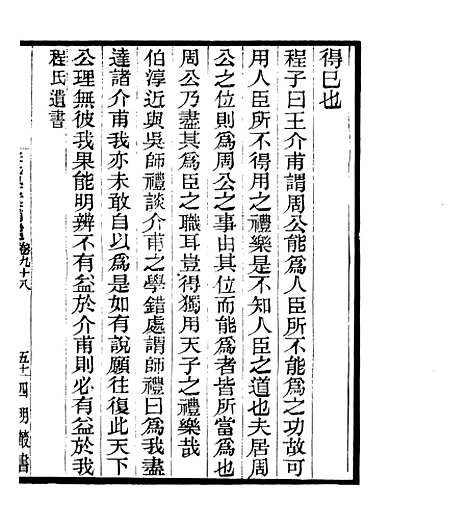 得已也
程子曰王介甫謂周公能為人臣所不能為之功故可
用人臣所不得用之禮樂是不知人臣之道也夫居周
公之位則為周公之事由其位而能為者皆所當為也
周公乃盡其為臣之職耳豈得獨用天子之禮樂哉
伯淳近與吳師禮談介甫之學錯處謂師禮曰為我盡
達諸介甫我亦未敢自以為是如有說願往復此天下
公理無彼我果能明辨不有益於介甫則必有益於我
程氏遺書
卷九十八
五十
四明叢書